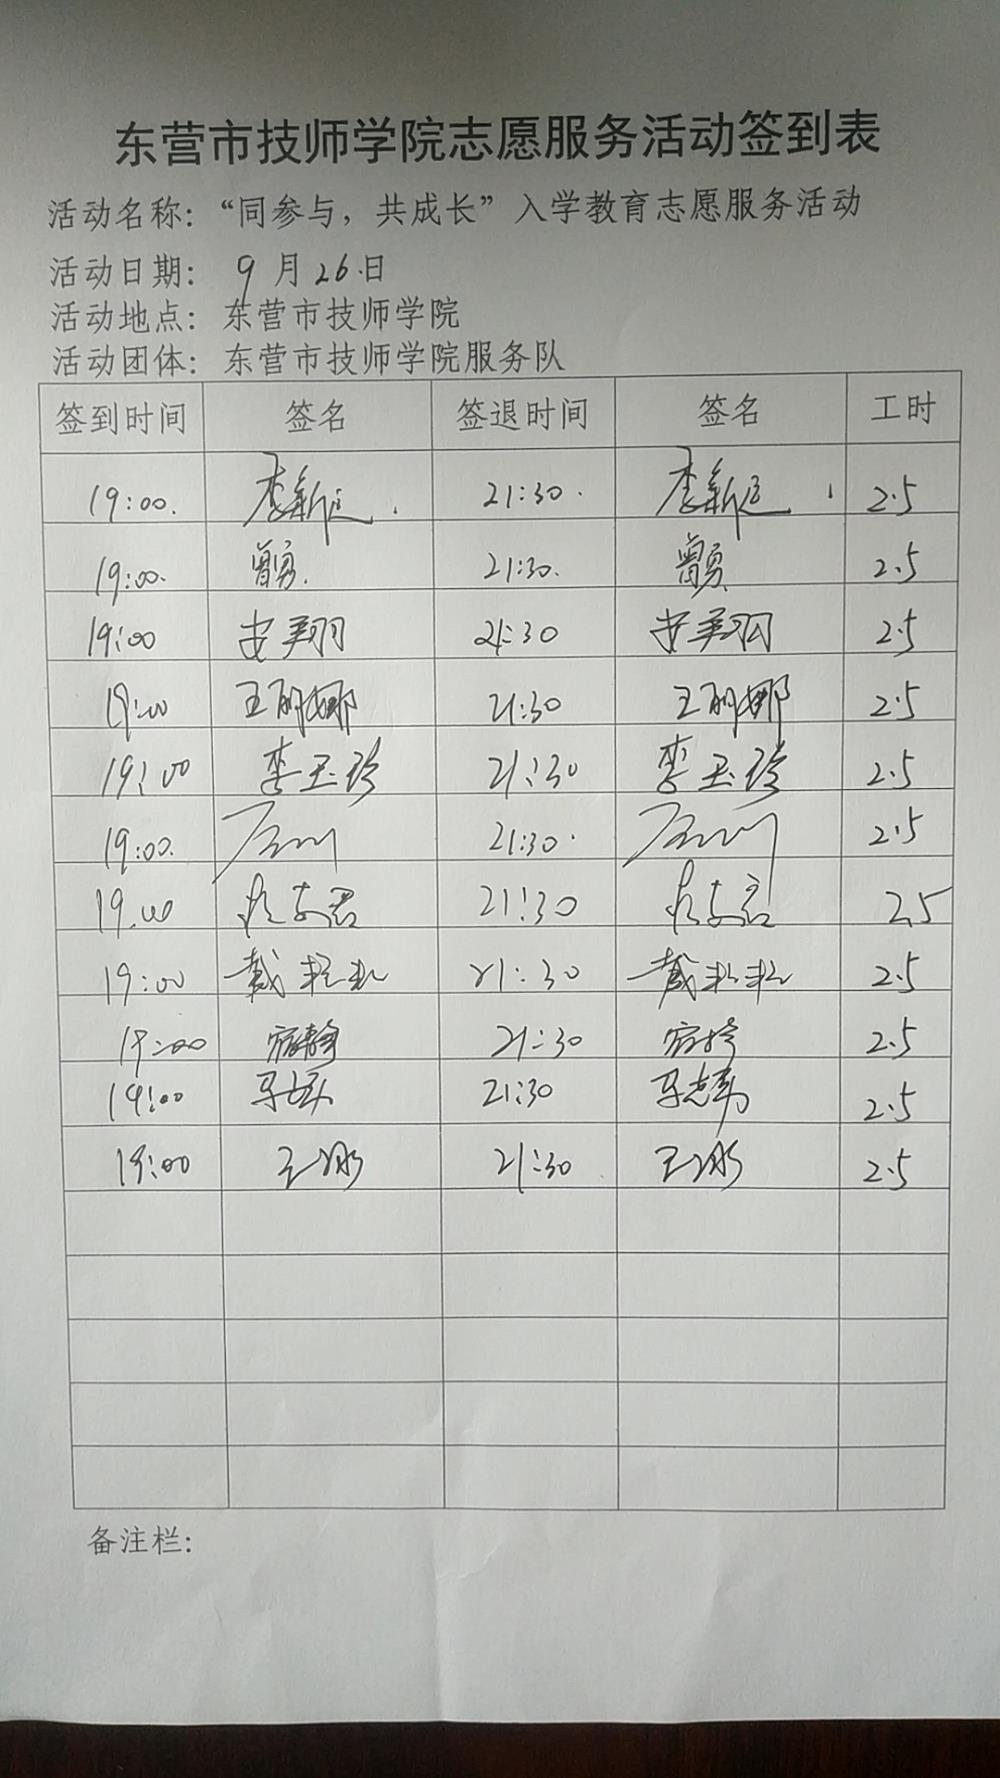 东营市技师学院志愿服务活动签到表
活动名称：“同参与，共成长”入学教育志愿服务活动
活动日期： 9月26日
活动地点：东营市技师学院
活动团体：东营市技师学院服务队
签到时间 签名 签退时间 签名 工时
19:00. 李新 21:30. 李新 2.5
19:00. 曾勇. 21:30. 曾勇 2.5
19:00 安翔 21:30 安翔 2.5
19:00 王丽娜 21:30 王丽娜 2.5
19:00 李玉玲 21:30 李玉玲 2.5
19:00. 21:30. 2.5
19.00 21:30 2.5
19:00 戴 21:30 戴 2.5
19:00 21:30 2.5
19:00 马 21:30 马志 2.5
19:00 王 21:30 王 2.5
备注栏：